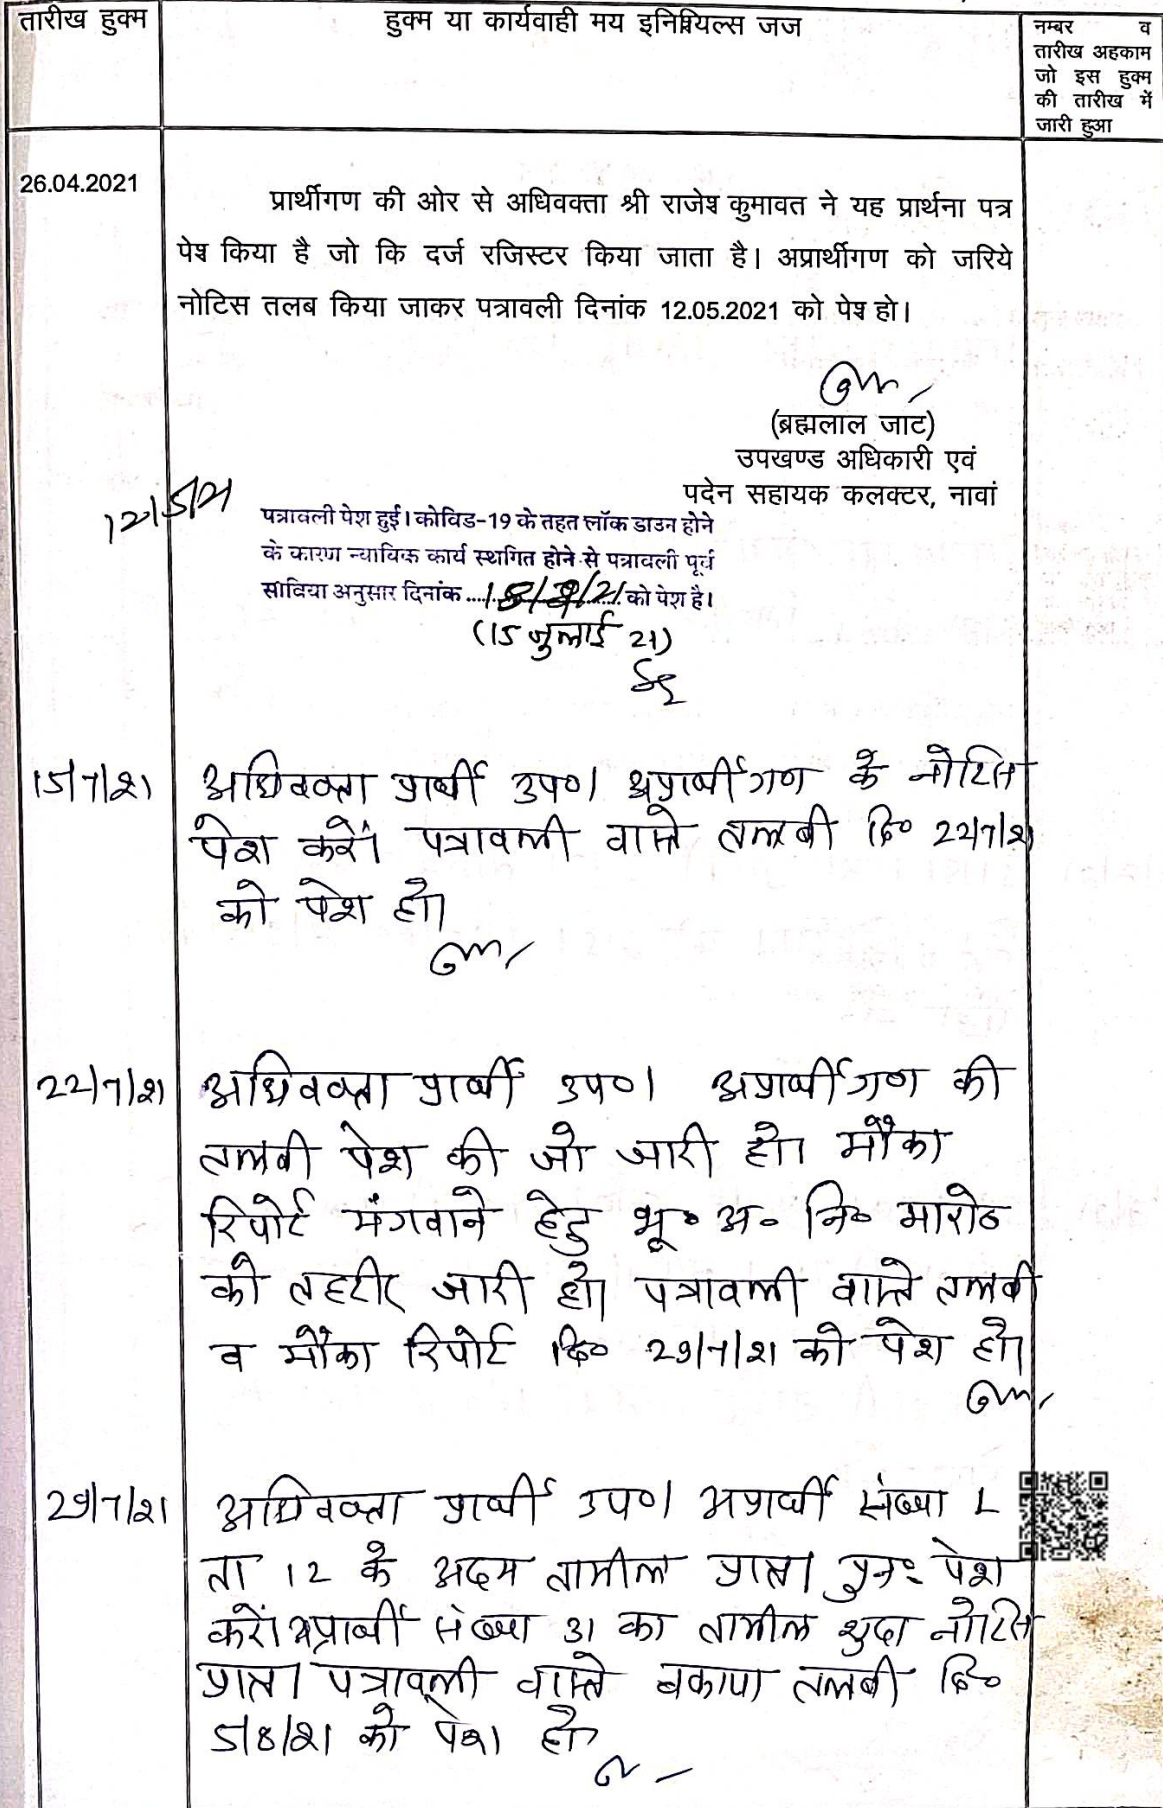 तारीख हुक्म
हुक्म या कार्यवाही मय इनिशियल्स जज
नम्बर व
तारीख अहकाम
जो इस हुक्म
की तारीख में
जारी हुआ
26.04.2021
प्रार्थीगण की ओर से अधिवक्ता श्री राजेश कुमावत ने यह प्रार्थना पत्र
पेश किया है जो कि दर्ज रजिस्टर किया जाता है। अप्रार्थीगण को जरिये
नोटिस तलब किया जाकर पत्रावली दिनांक 12.05.2021 को पेश हो।
(ब्रह्मलाल जाट)
उपखण्ड अधिकारी एवं
पदेन सहायक कलक्टर, नावां
12/5/21
पत्रावली पेश हुई। कोविड-19 के तहत लॉक डाउन होने
के कारण न्यायिक कार्य स्थगित होने से पत्रावली पूर्व
अनुसार दिनांक ..... को पेश है।
(15 जुलाई 21)
15/7/21
अधिवक्ता प्रार्थी उप०। अप्रार्थीगण के नोटिस
पेश करें। पत्रावली वास्ते तलबी दि० 22/7/21
को पेश हो।
22/7/21
अधिवक्ता प्रार्थी उप०। अप्रार्थीगण की
तलबी पेश की जो जारी हो। मौका
रिपोर्ट मंगवाने हेतु भू० अ० नि० मारोठ
को तहरीर जारी हो। पत्रावली वास्ते तलबी
व मौका रिपोर्ट दि० 29/7/21 को पेश हो।
29/7/21
अधिवक्ता प्रार्थी उप०। अप्रार्थी संख्या 1
ता 12 के अदम तामील प्राप्त। पुनः पेश
करें। अप्रार्थी संख्या 31 का तामील शुदा नोटिस
प्राप्त। पत्रावली वास्ते बकाया तलबी दि०
5/8/21 को पेश हो।